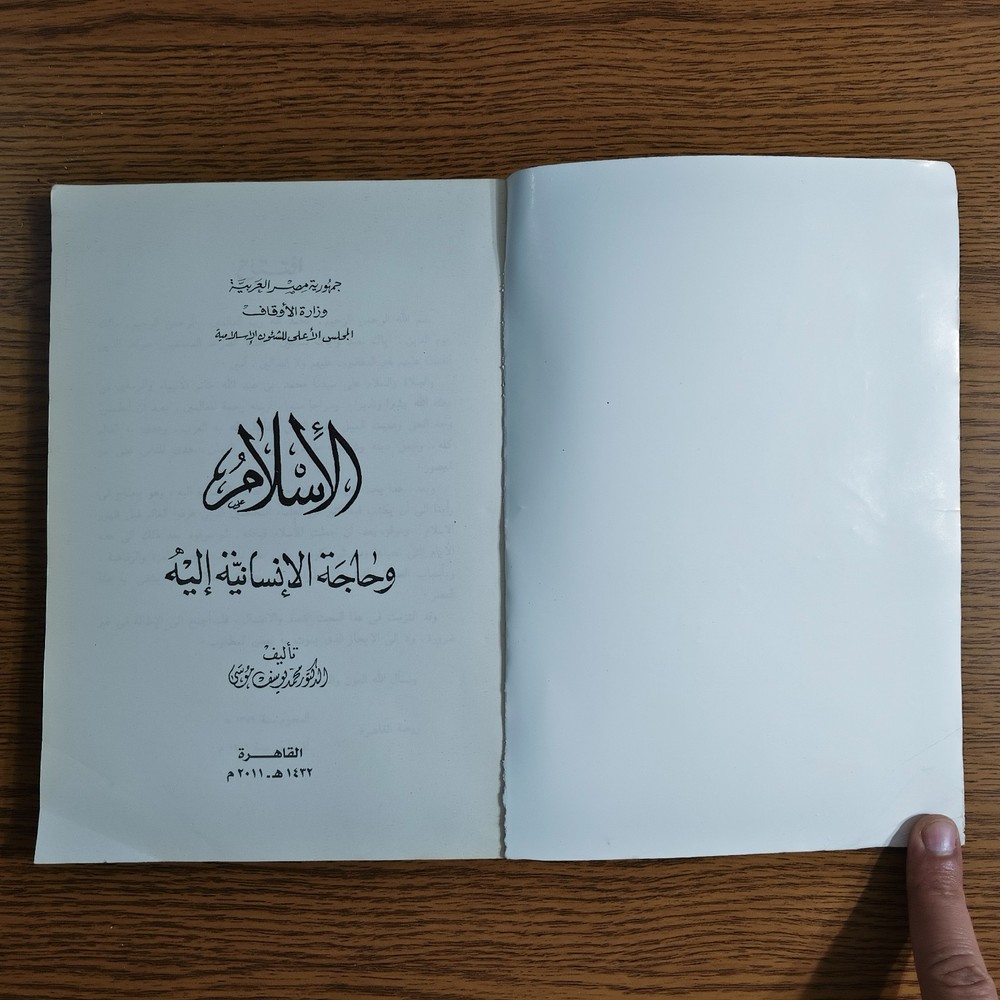 جمهورية مصر العربية
وزارة الأوقاف
المجلس الأعلى للشئون الإسلامية
الإسلام
وحاجة الإنسانية إليه
تأليف
الدكتور محمد يوسف موسى
القاهرة
١٤٣٢ هـ - ٢٠١١ م